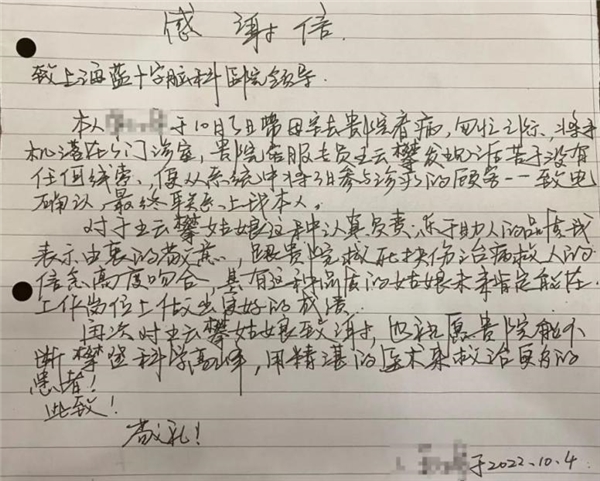 感谢信.
致上海蓝十字脑科医院领导:
本人 于10月3日带母亲去贵院看病,匆忙之际、将手
机落在了门诊室,贵院客服专员王云攀发现后苦于没有
任何线索、便从系统中将3日参与诊录的顾客一一致电
确认,最终联系上我本人。
对于王云攀姑娘这种认真负责、乐于助人的品质我
表示由衷的敬意,跟贵院救死扶伤治病救人的
信念高度吻合,具有这种品质的姑娘未来肯定能在
工作岗位上做出更好的成绩
再次对王云攀姑娘致谢,也祝愿贵院能不
断攀登科学高峰,用精湛的医术来救治更多的
患者!
此致!
敬礼!
于2022.10.4